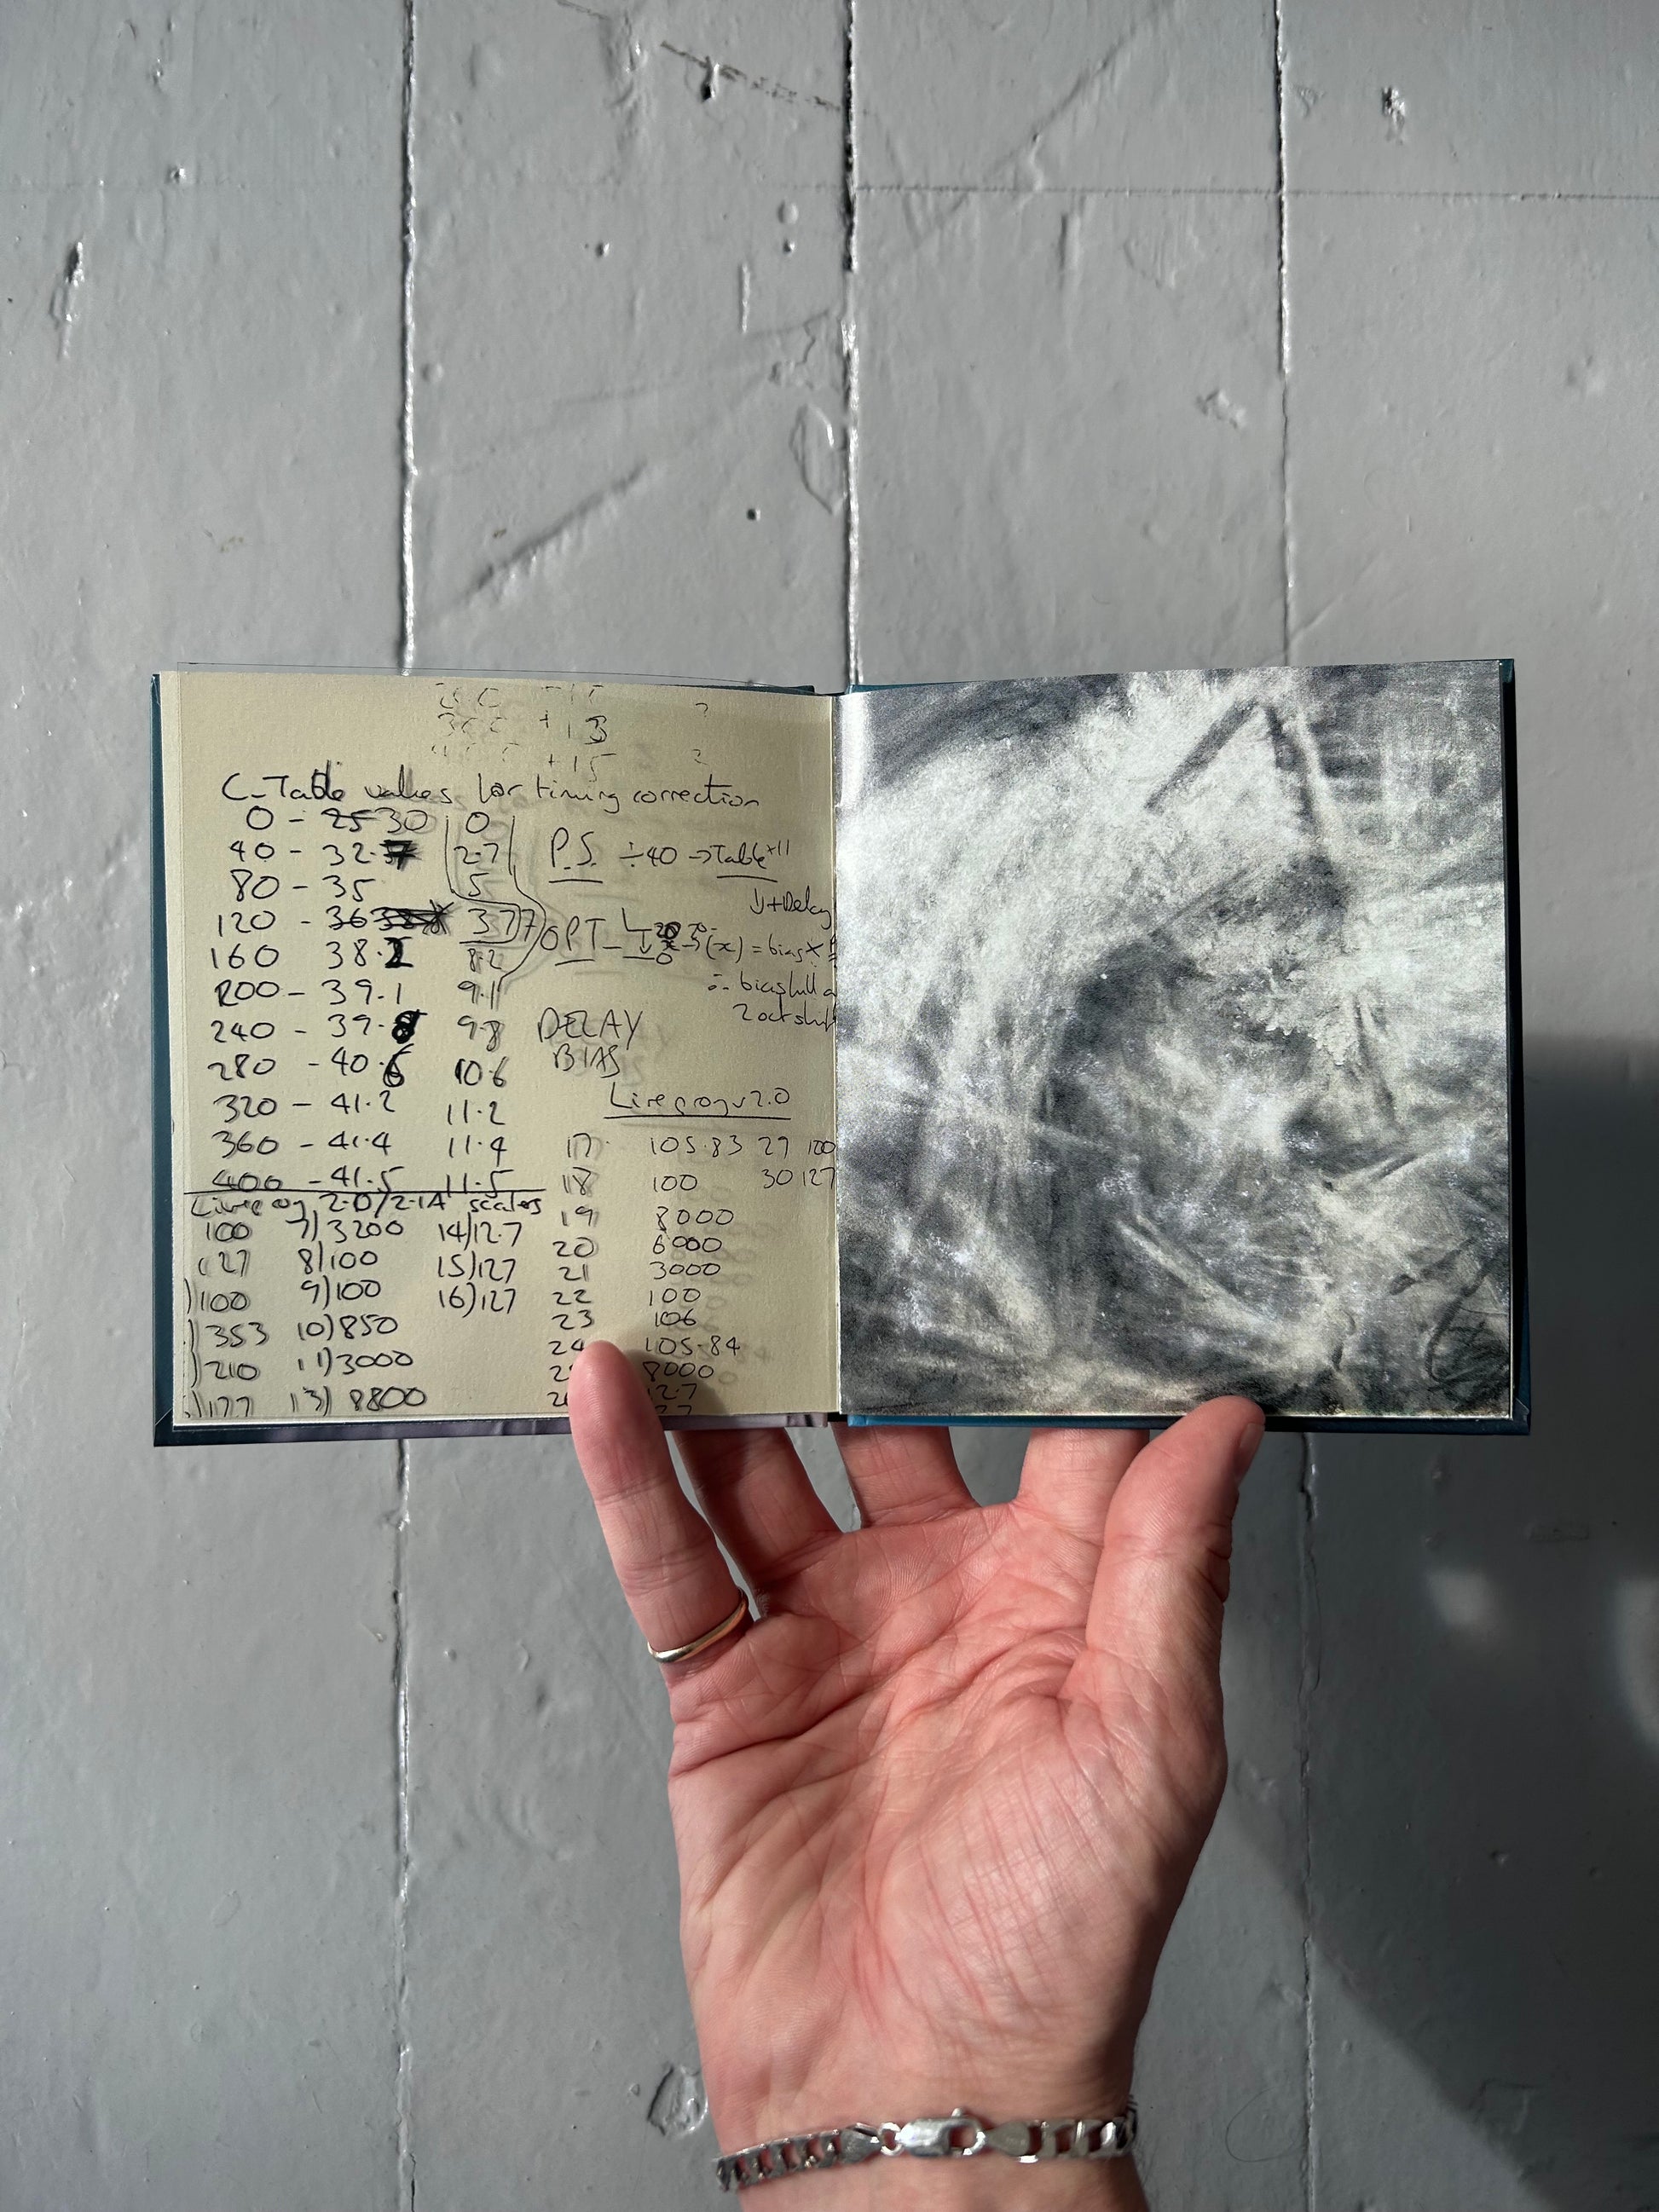 +13 ?
+15 ?
C-Table values for timing correction
0 - 25 30 0
40 - 32. 2.7
80 - 35 5
120 - 36 377
160 38.2 8.2
200 - 39.1 9.1
240 - 39.8 9.8
280 - 40.6 10.6
320 - 41.2 11.2
360 - 41.4 11.4
400 - 41.5 11.5
P.S. ÷40 → Table +11
↓ + Delay
OPT (x) = bias x
∴ bias full
2 oct shift
DELAY
BIAS
2.0/2.1A scales
100 7) 3200 14) 12.7
127 8) 100 15) 127
) 100 9) 100 16) 127
) 353 10) 850
) 210 11) 3000
) 177 13) 8800
v2.0
17 105.83 29 100
18 100 30 127
19 8000
20 6000
21 3000
22 100
23 106
24 105.84
8000
12.7